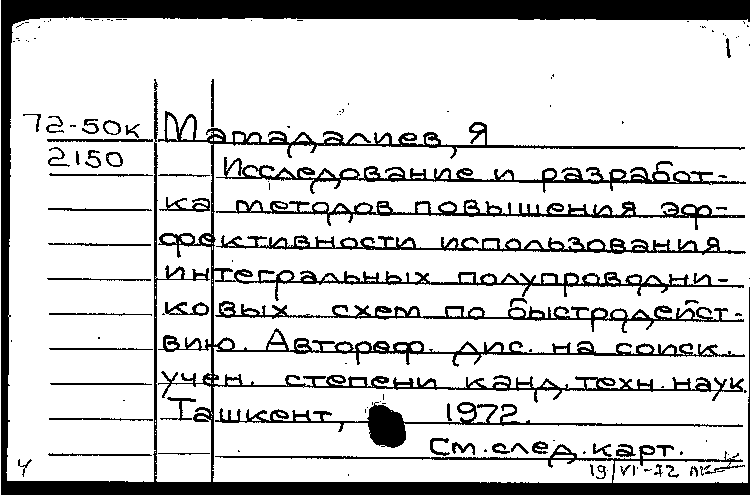 1
72-50к Мамадалиев, Я
2150 Исследование и разработ-
ка методов повышения эф-
фективности использования
интегральных полупроводни-
ковых схем по быстродейст-
вию. Автореф. дис. на соиск.
учен. степени канд. техн. наук.
Ташкент, 1972.
См. след. карт.
19/VI-72